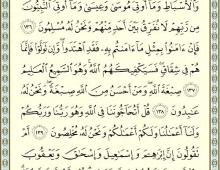 وَٱلْأَسْبَاطِ وَمَآ أُوتِىَ مُوسَىٰ وَعِيسَىٰ وَمَآ أُوتِىَ ٱلنَّبِيُّونَ
مِن رَّبِّهِمْ لَا نُفَرِّقُ بَيْنَ أَحَدٍ مِّنْهُمْ وَنَحْنُ لَهُۥ مُسْلِمُونَ ١٣٦
فَإِنْ ءَامَنُوا۟ بِمِثْلِ مَآ ءَامَنتُم بِهِۦ فَقَدِ ٱهْتَدَوا۟ وَّإِن تَوَلَّوْا۟ فَإِنَّمَا
هُمْ فِى شِقَاقٍ فَسَيَكْفِيكَهُمُ ٱللَّهُ وَهُوَ ٱلسَّمِيعُ ٱلْعَلِيمُ
١٣٧ صِبْغَةَ ٱللَّهِ وَمَنْ أَحْسَنُ مِنَ ٱللَّهِ صِبْغَةً وَنَحْنُ لَهُۥ
عَـٰبِدُونَ ١٣٨ قُلْ أَتُحَآجُّونَنَا فِى ٱللَّهِ وَهُوَ رَبُّنَا وَرَبُّكُمْ
وَلَنَآ أَعْمَـٰلُنَا وَلَكُمْ أَعْمَـٰلُكُمْ وَنَحْنُ لَهُۥ مُخْلِصُونَ ١٣٩
تَقُولُونَ إِنَّ إِبْرَٰهِـۧمَ وَإِسْمَـٰعِيلَ وَإِسْحَـٰقَ وَيَعْقُوبَ